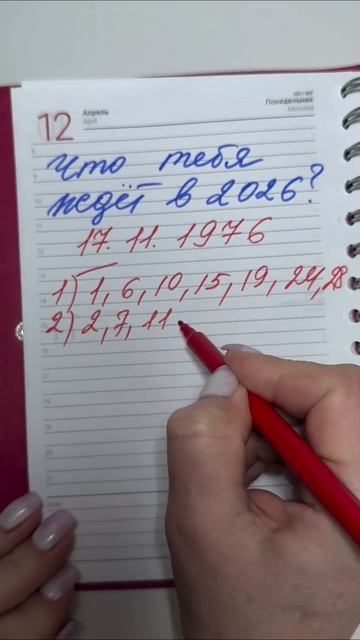 12
Апрель
April
Понедельник
Monday
Что тебя
ждёт в 2026?
17. 11. 1976
1) 1, 6, 10, 15, 19, 24, 28
2) 2, 7, 11